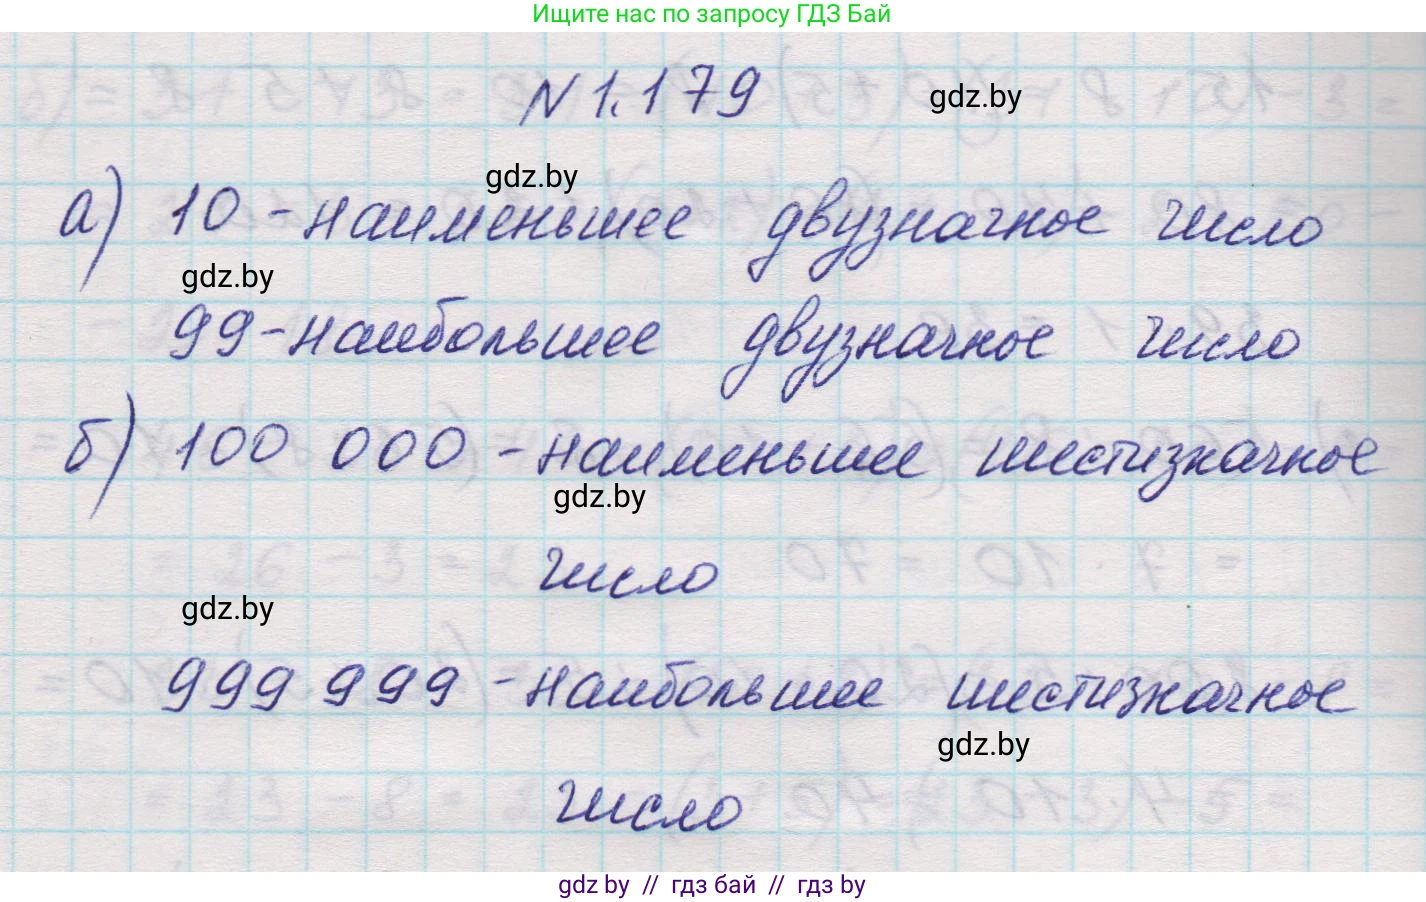 Ищите нас по запросу ГДЗ Бай
N 1.179
gdz.by
gdz.by
а) 10 - наименьшее двузначное число
gdz.by
99 - наибольшее двузначное число
б) 100 000 - наименьшее шестизначное
gdz.by
число
gdz.by
999 999 - наибольшее шестизначное
gdz.by
число
gdz by // гдз бай // гдз by